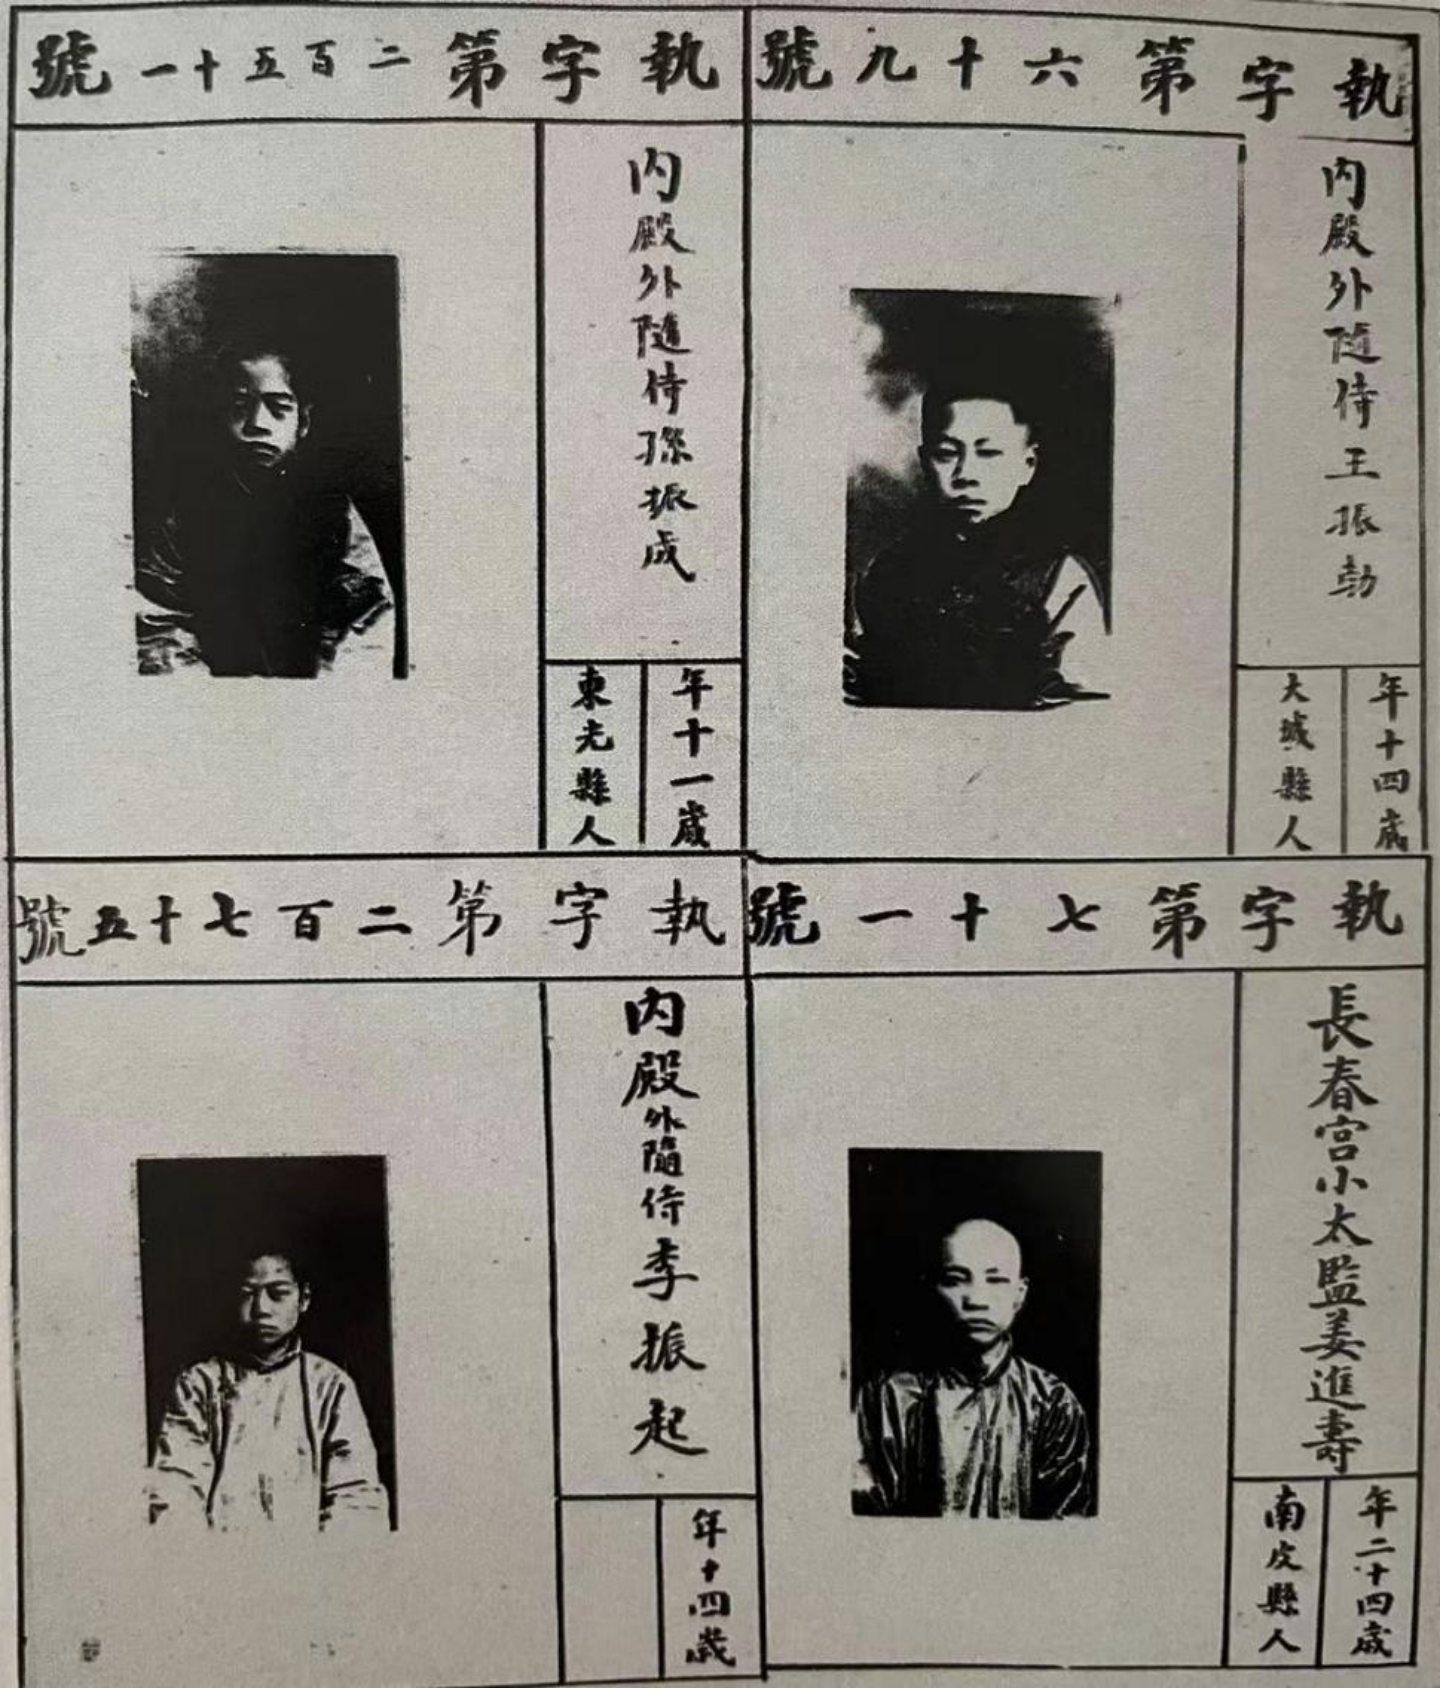 執字第六十九號
内殿外隨侍王振勃
年十四歲
大城縣人
執字第二百五十一號
内殿外隨侍孫振成
年十一歲
東光縣人
執字第七十一號
長春宮小太監姜進壽
年二十四歲
南皮縣人
執字第二百七十五號
内殿外隨侍李振起
年十四歲